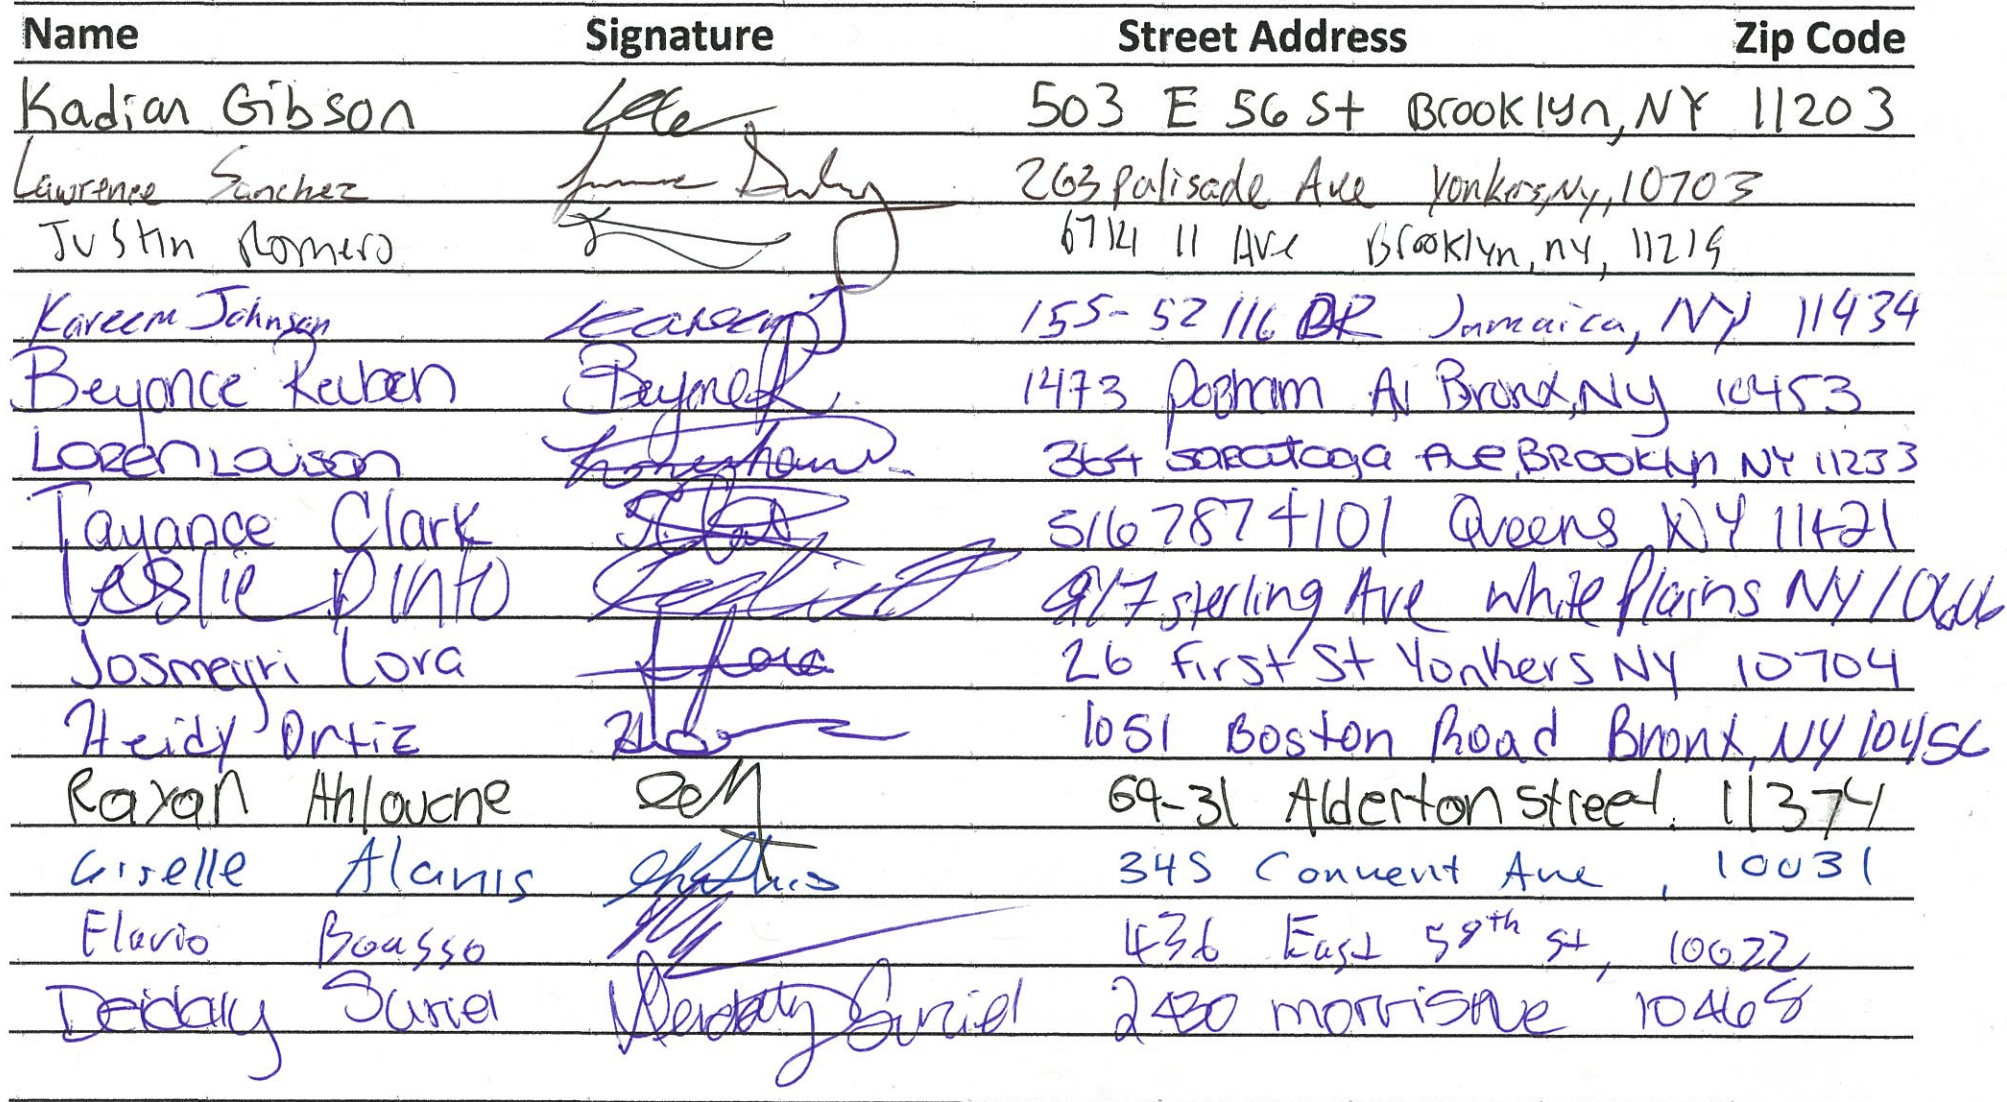 Name Signature Street Address Zip Code
Kadian Gibson 503 E 56 St Brooklyn, NY 11203
Lawrence Sanchez 263 Palisade Ave Yonkers, Ny, 10703
Justin Romero 6714 11 Ave Brooklyn, ny, 11219
Kareem Johnson Kareem J 155-52 116 DR Jamaica, NY 11434
Beyonce Reuben 1473 Popham Av Bronx, NY 10453
LOREN LOUISON 364 Saratoga Ave, BROOKlyn NY 11233
Tayance Clark 516 787 4101 Queens, NY 11421
Leslie Pinto 917 Sterling Ave White Plains NY
Josmeyri Lora J Lora 26 First St Yonkers NY 10704
Heidy Ortiz 1051 Boston Road Bronx, NY 10456
Rayan 69-31 Alderton street. 11374
Giselle Alanis 345 Convent Ave, 10031
Flavio Boasso 436 East 58th st, 10022
Deidaly Suriel Deidaly Suriel 2430 morris Ave 10468